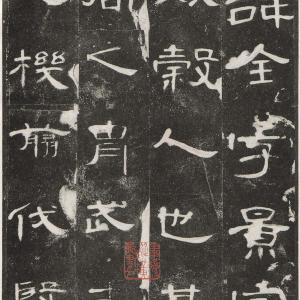 諱全字景完
效穀人也其
周之胄武王
之機翦伐殷